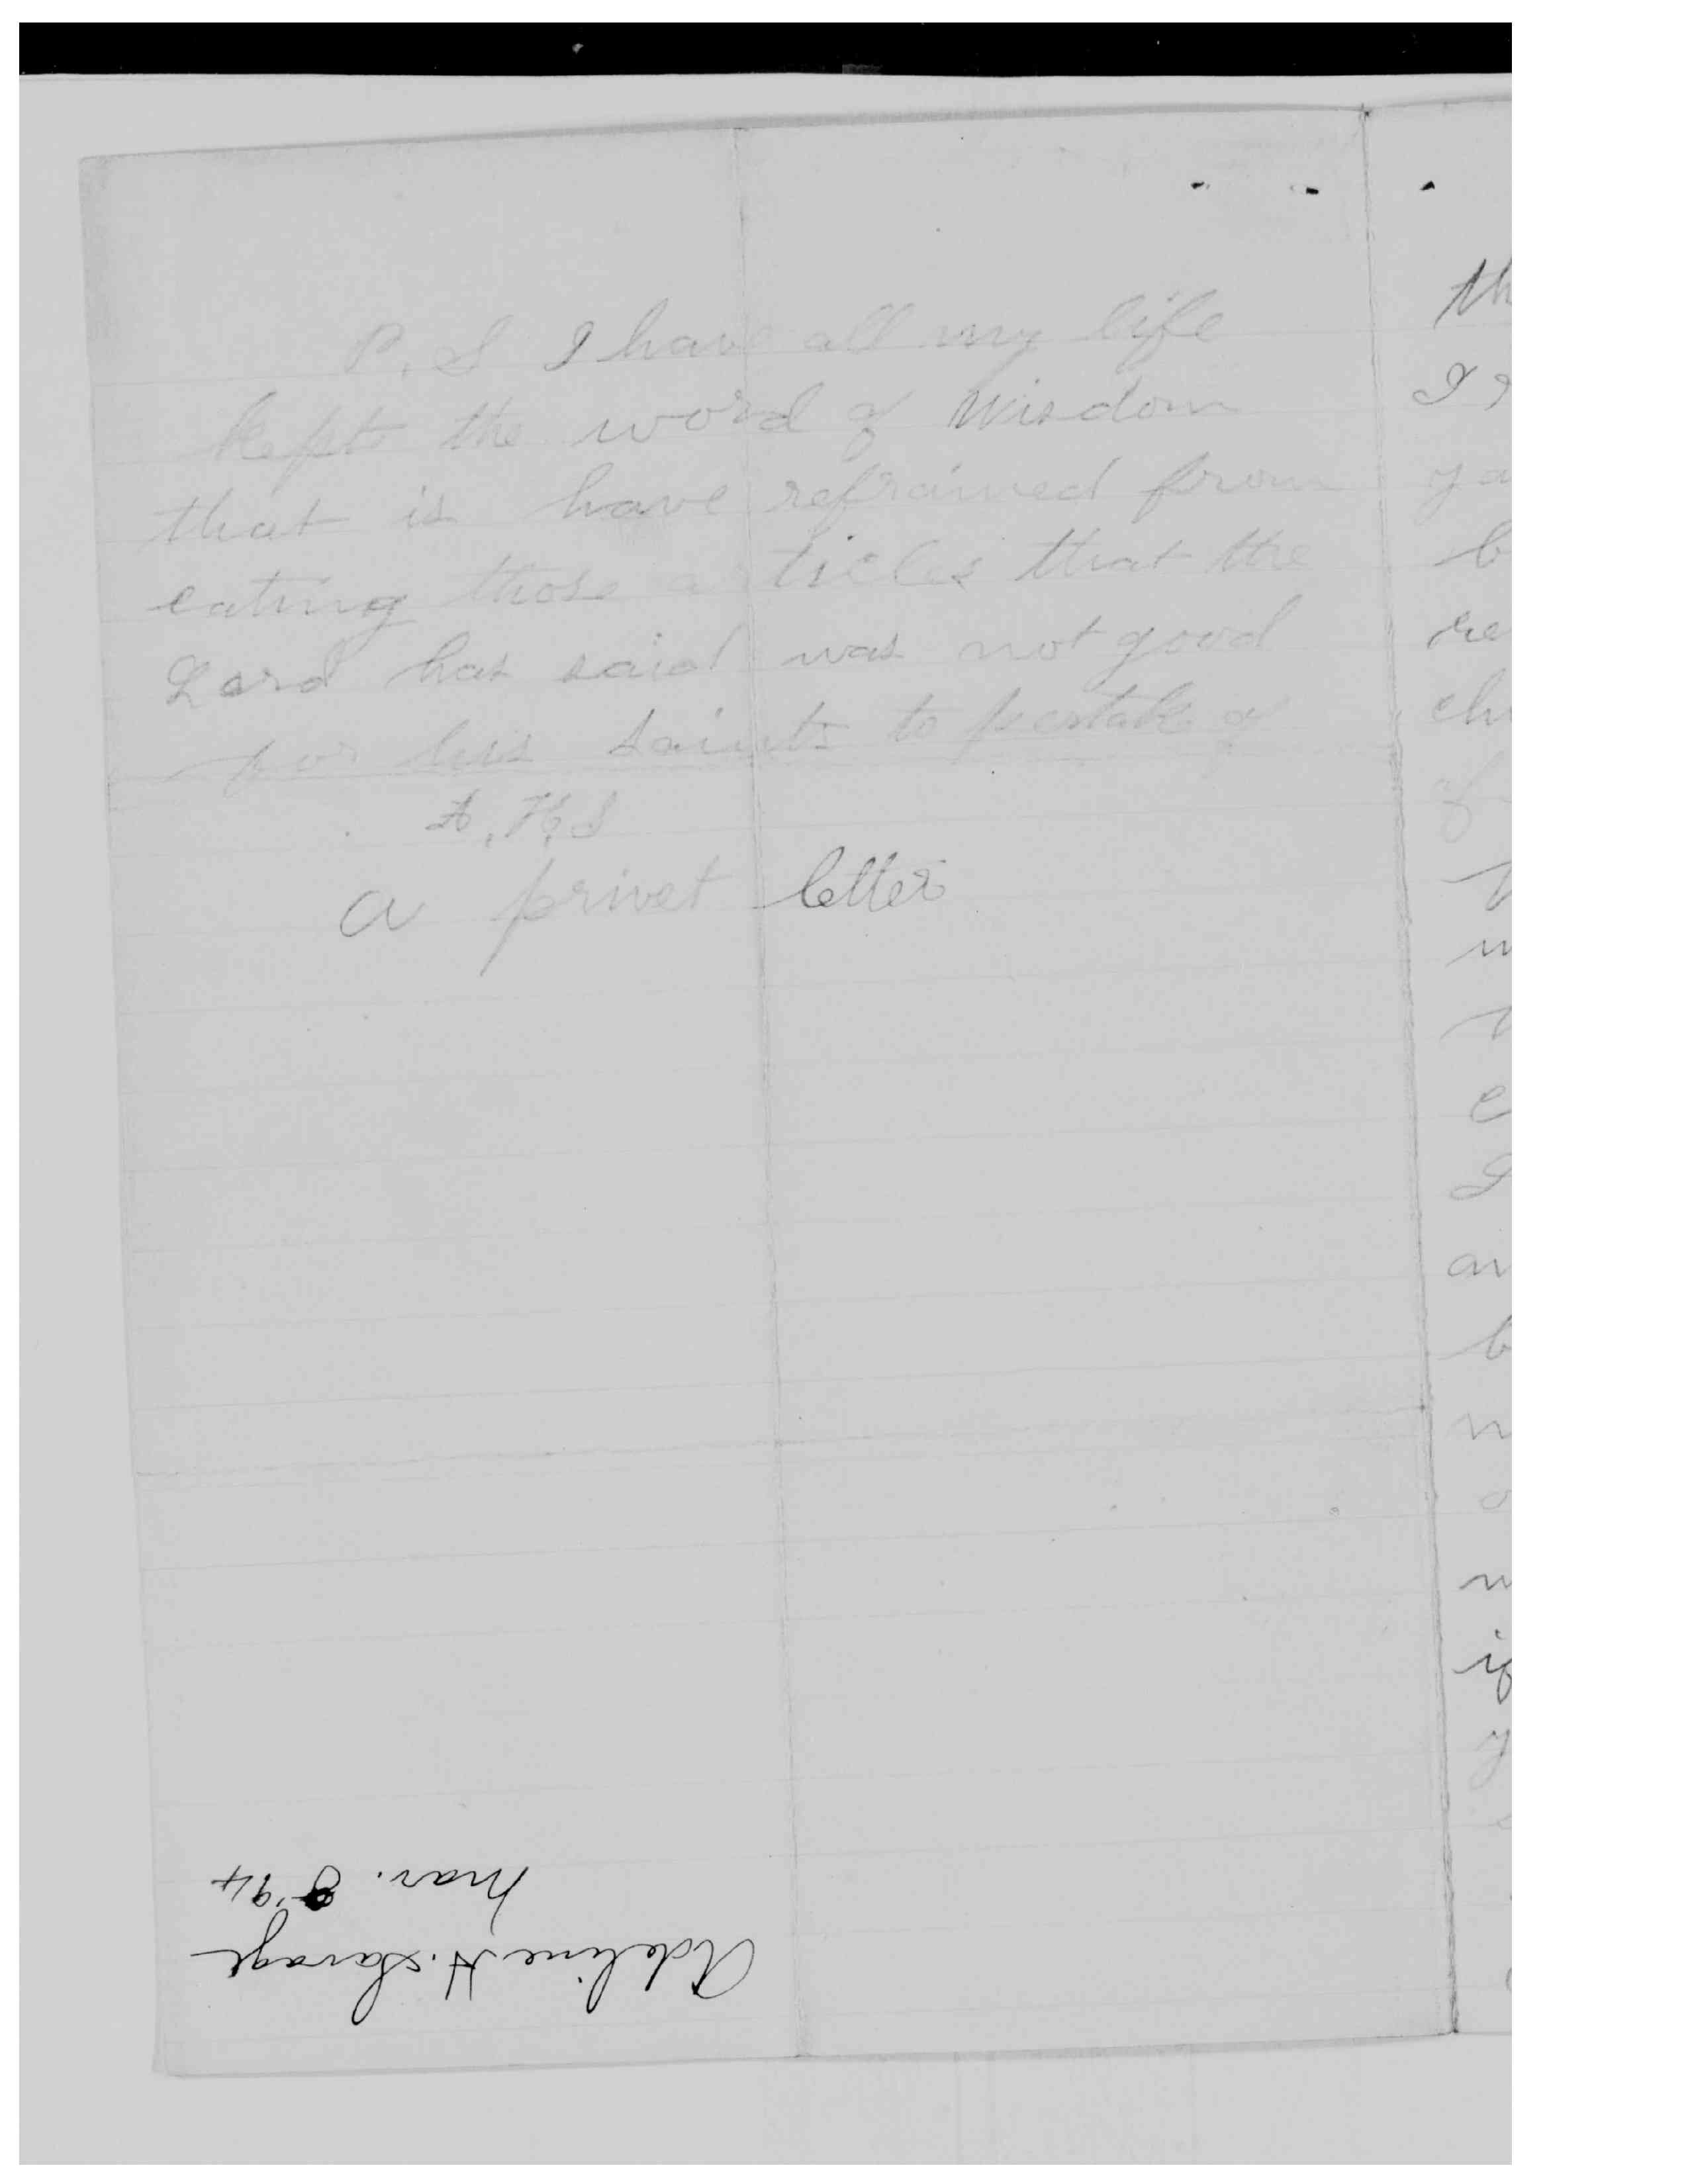 P. S I have all my life
kept the word of Wisdom
that is have refrained from
eating those articles that the
Lord has said was not good
for his saints to pertake of
A, H, S
a privet letter
Adeline H. Savage
Mar. 8 '94
th
I
ya
b
re
ch
of
w
e
I
an
b
if
y